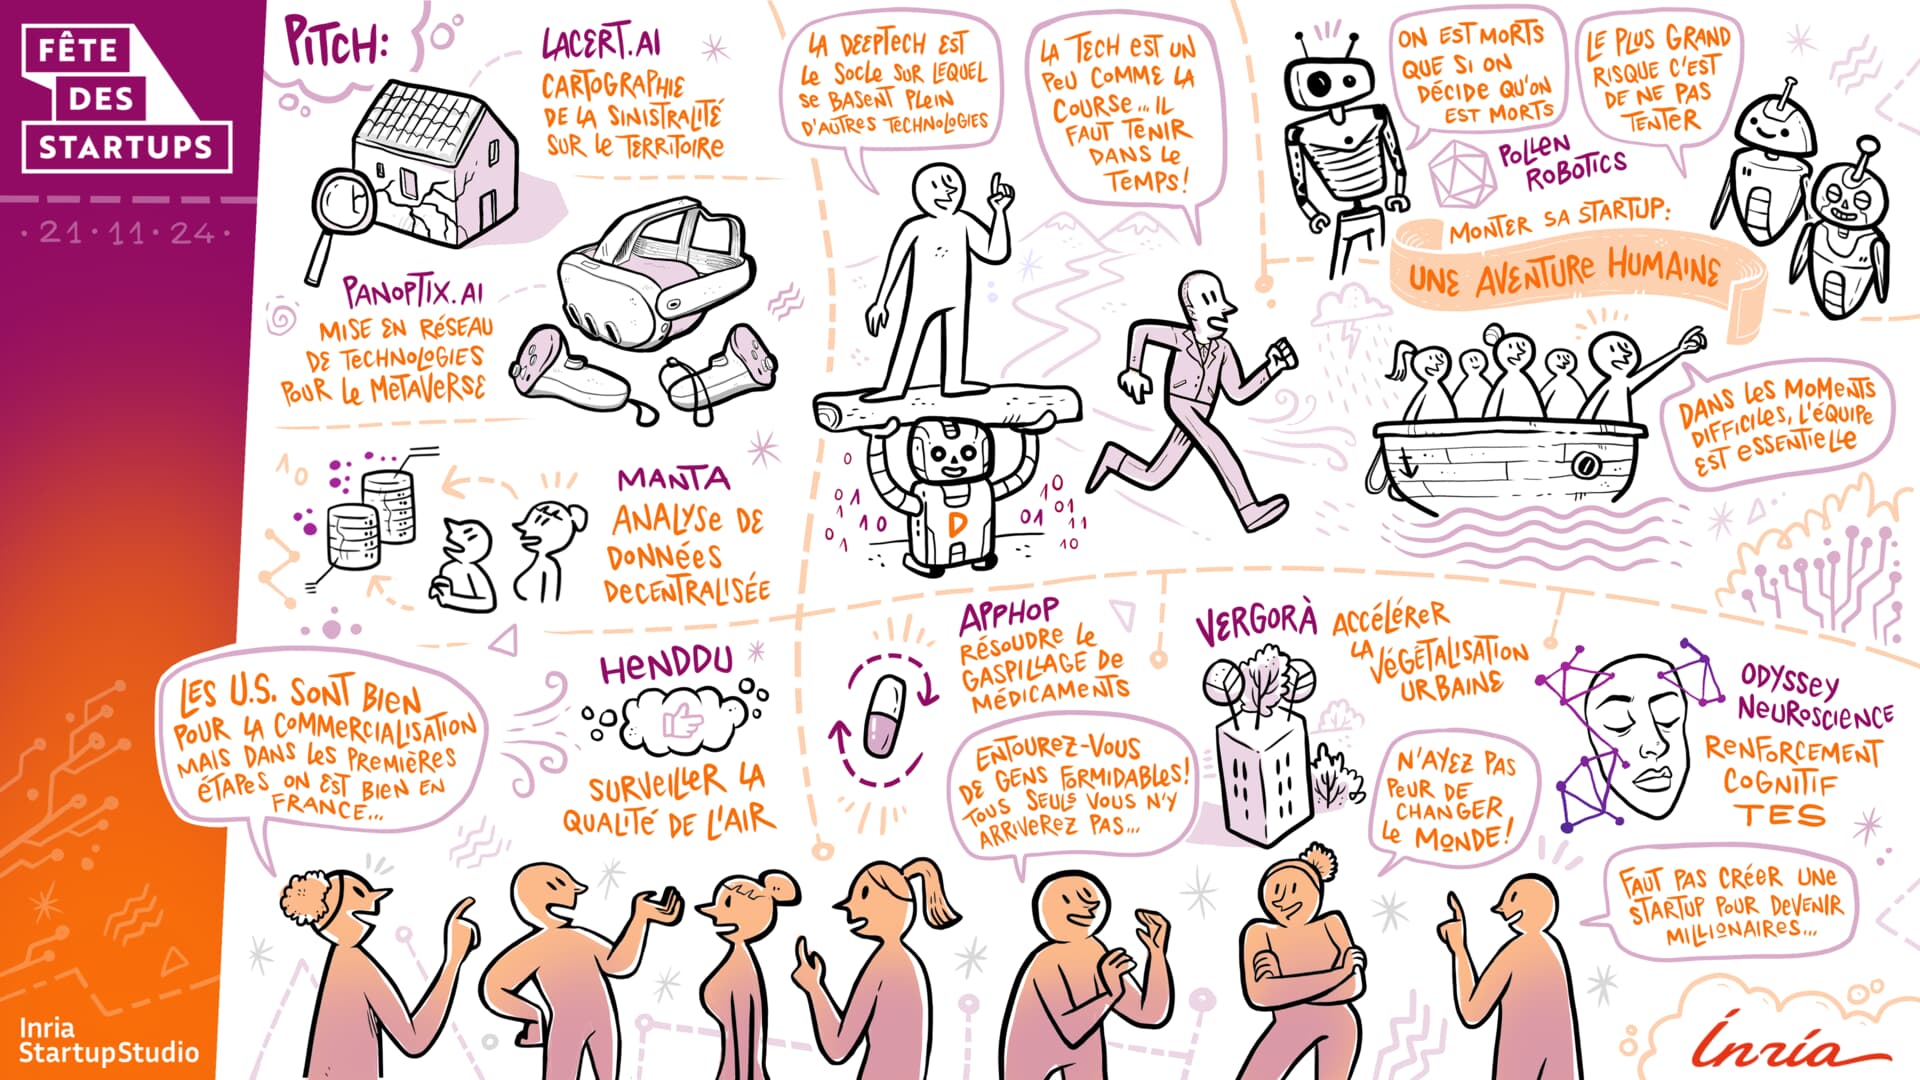 FÊTE
DES
STARTUPS
· 21 · 11 · 24 ·
PITCH:
LACERT.AI
CARTOGRAPHIE
DE LA SINISTRALITÉ
SUR LE TERRITOIRE
PANOPTIX.AI
MISE EN RÉSEAU
DE TECHNOLOGIES
POUR LE METAVERSE
10
MANTA
ANALYSE DE
DONNÉES
DECENTRALISÉE
LA DEEPTECH EST
LE SOCLE SUR LEQUEL
SE BASENT PLEIN
D'AUTRES TECHNOLOGIES
LA TECH EST UN
PEU COMME LA
COURSE... IL
FAUT TENIR
DANS LE
TEMPS!
D
0
01
0 10
0
1
10
01
01 11
10
ON EST MORTS
QUE SI ON
DÉCIDE QU'ON
EST MORTS
LE PLUS GRAND
RISQUE C'EST
DE NE PAS
TENTER
POLLEN
ROBOTICS
MONTER SA STARTUP:
UNE AVENTURE HUMAINE
DANS LES MOMENTS
DIFFICILES, L'ÉQUIPE
EST ESSENTIELLE
LES U.S. SONT BIEN
POUR LA COMMERCIALISATION
MAIS DANS LES PREMIÈRES
ÉTAPES ON EST BIEN EN
FRANCE...
HENDDU
SURVEILLER LA
QUALITÉ DE L'AIR
APPHOP
RÉSOUDRE LE
GASPILLAGE DE
MÉDICAMENTS
ENTOUREZ-VOUS
DE GENS FORMIDABLES!
TOUS SEULS VOUS N'Y
ARRIVEREZ PAS...
VERGORÀ
ACCÉLÉRER
LA
VÉGÉTALISATION
URBAINE
N'AYEZ PAS
PEUR DE
CHANGER
LE MONDE!
ODYSSEY
NEUROSCIENCE
RENFORCEMENT
COGNITIF
TES
FAUT PAS CRÉER UNE
STARTUP POUR DEVENIR
MILLIONAIRES...
Inria
StartupStudio
Inria